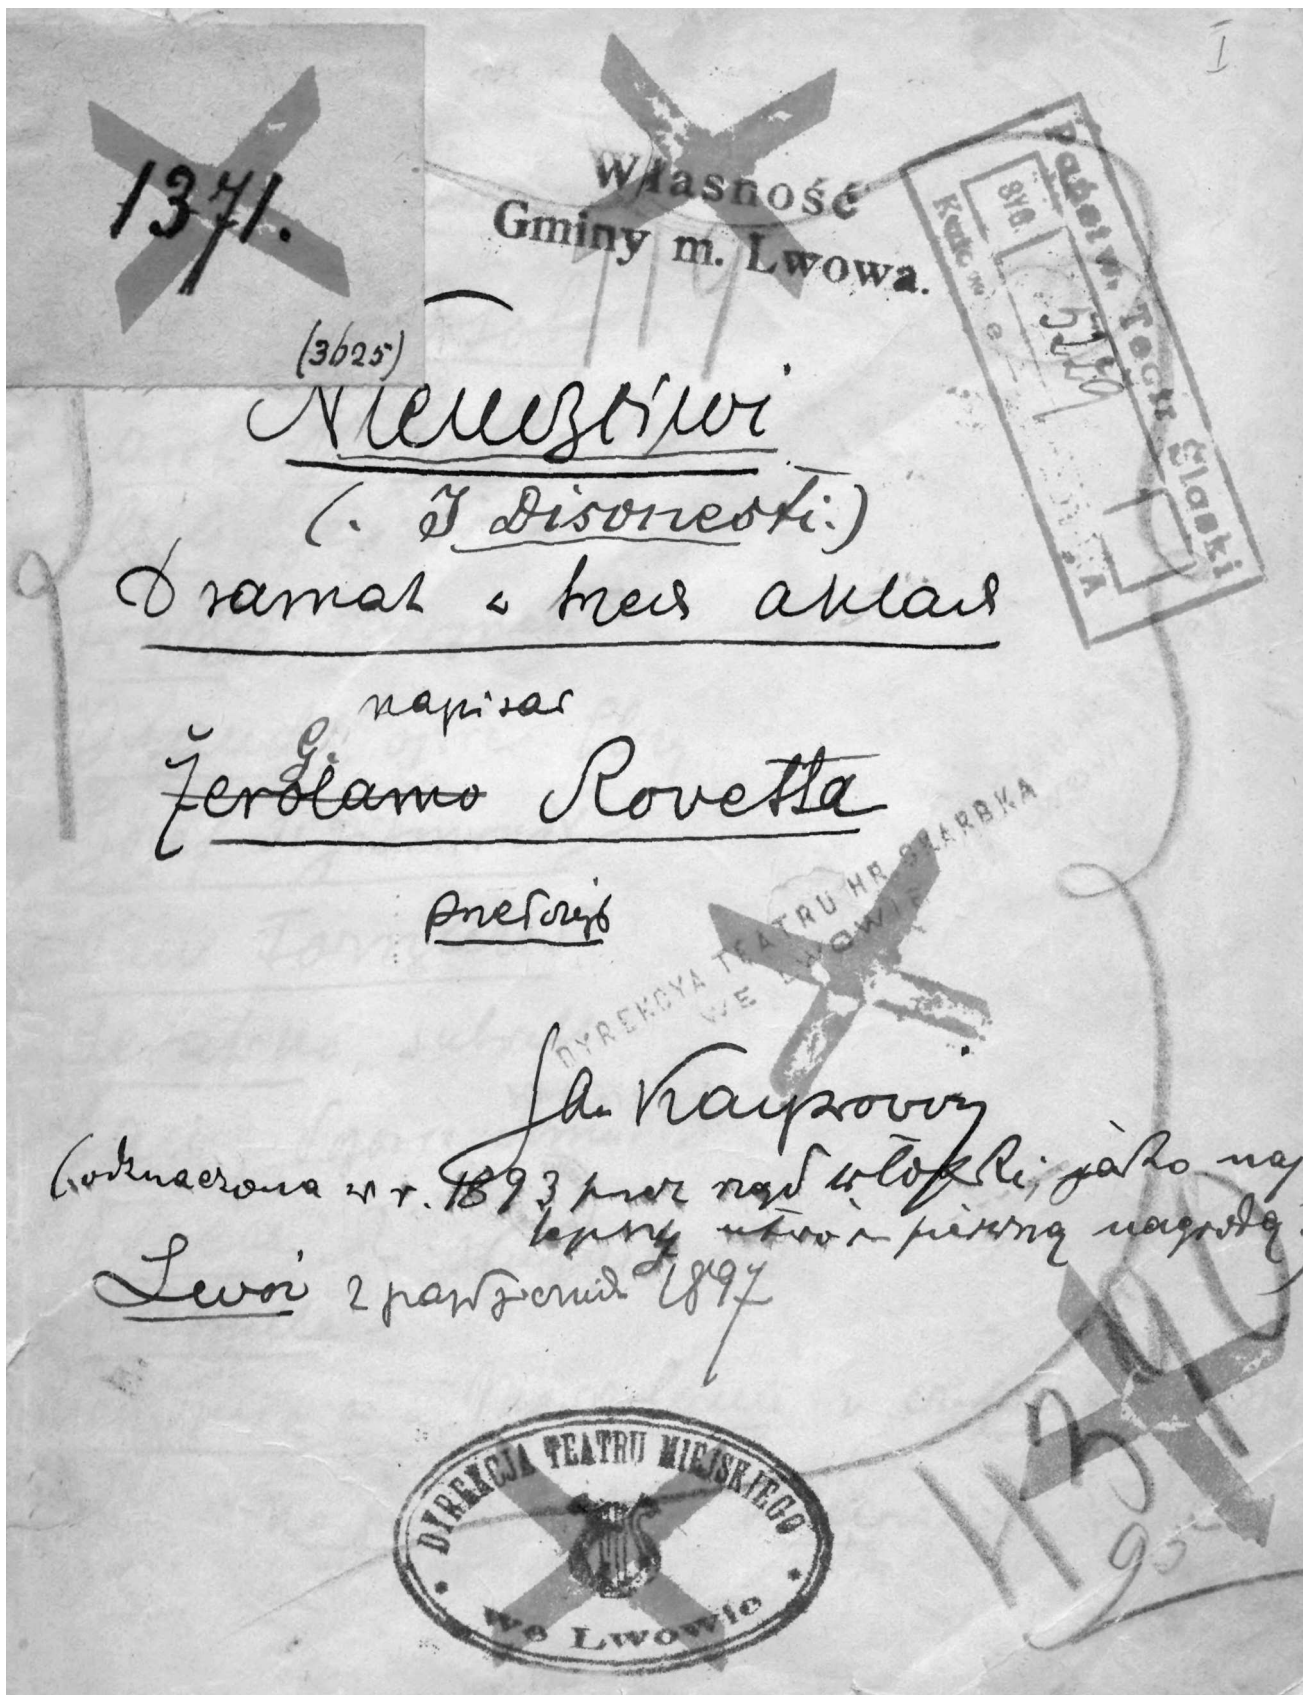 I
1371.
(3625)
Własność
Gminy m. Lwowa.
Państw. Teatr Śląski
SYG.
5229
Nieuczciwi
(. I Disonesti.)
Dramat w trzech aktach
napisał
G.
Żerolamo Rovetta
przełożył
Jan Kasprowicz
DYREKCYA TEATRU HR. SKARBKA
WE LWOWIE
(odznaczona w r. 1893 przez rząd włoski, jako naj
lepszy utwór pierwszą nagrodą)
Lwów 2 październik 1897
DYREKCJA TEATRU MIEJSKIEGO
we Lwowie
95